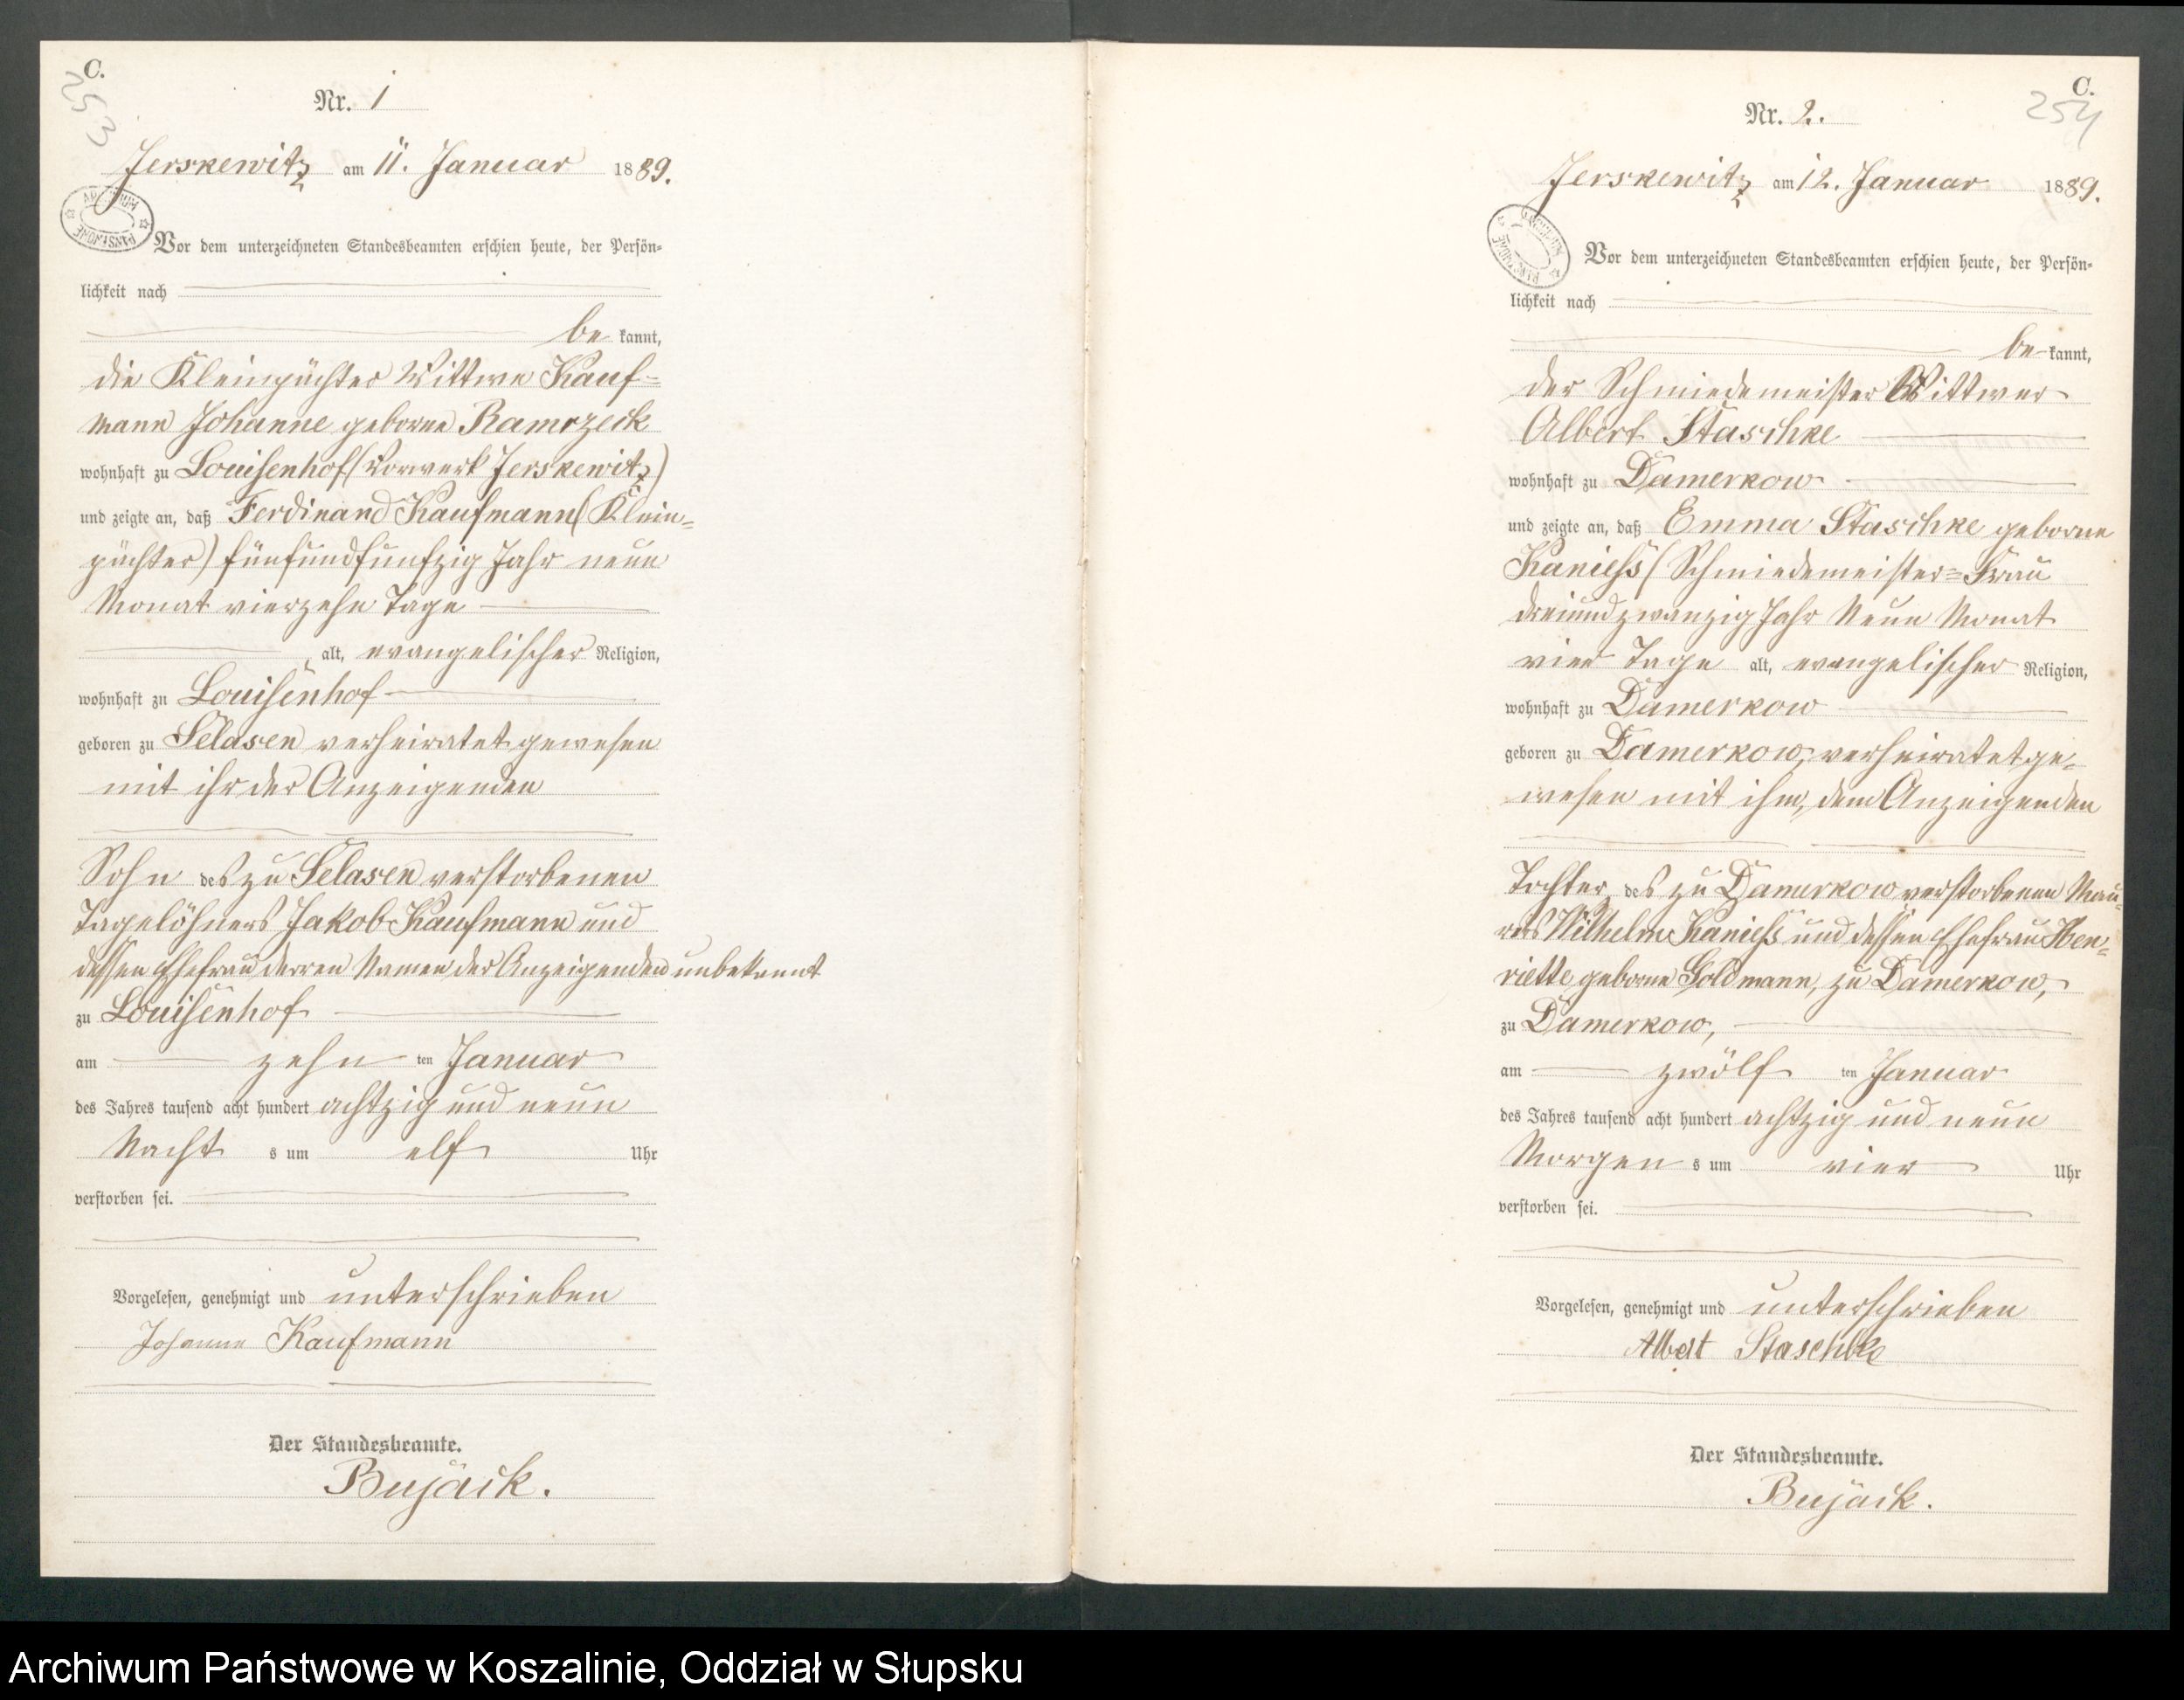 C.
253
Nr. 1
Jerskewitz am 11. Januar 1889.
Vor dem unterzeichneten Standesbeamten erschien heute, der Persön-
lichkeit nach
be kannt,
die Kleinpächter Wittwe Kauf-
mann Johanne geborne Ramrzeck
wohnhaft zu Louisenhof (Vorwerk Jerskewitz)
und zeigte an, daß Ferdinand Kaufmann (Klein-
pächter) fünfundfunfzig Jahr neun
Monat vierzehn Tage
alt, evangelischer Religion,
wohnhaft zu Louisenhof
geboren zu Selasen verheiratet gewesen
mit ihr der Anzeigenden
Sohn des zu Selasen verstorbenen
Tagelöhners Jakob Kaufmann und
dessen Ehefrau derren Namen der Anzeigenden unbekannt
zu Louisenhof
am zehn ten Januar
des Jahres tausend acht hundert achtzig und neun
Nacht s um elf Uhr
verstorben sei.
Vorgelesen, genehmigt und unterschrieben
Johanne Kaufmann
Der Standesbeamte.
Bujack.
C.
254
Nr. 2.
Jerskewitz am 12. Januar 1889.
Vor dem unterzeichneten Standesbeamten erschien heute, der Persön-
lichkeit nach
be kannt,
der Schmiedemeister Wittwer
Albert Staschke
wohnhaft zu Damerkow
und zeigte an, daß Emma Staschke geborne
Kaniess (Schmiedemeister-Frau
dreiundzwanzig Jahr Neun Monat
vier Tage alt, evangelischer Religion,
wohnhaft zu Damerkow
geboren zu Damerkow, verheiratet ge-
wesen mit ihm, dem Anzeigenden
Tochter des zu Damerkow verstorbenen Mau-
rers Wilhelm Kaniess und dessen Ehefrau Hen-
riette geborne Goldmann, zu Damerkow,
zu Damerkow,
am zwölf ten Januar
des Jahres tausend acht hundert achtzig und neun
Morgen s um vier Uhr
verstorben sei.
Vorgelesen, genehmigt und unterschrieben
Albert Staschke
Der Standesbeamte.
Bujack.
Archiwum Państwowe w Koszalinie, Oddział w Słupsku